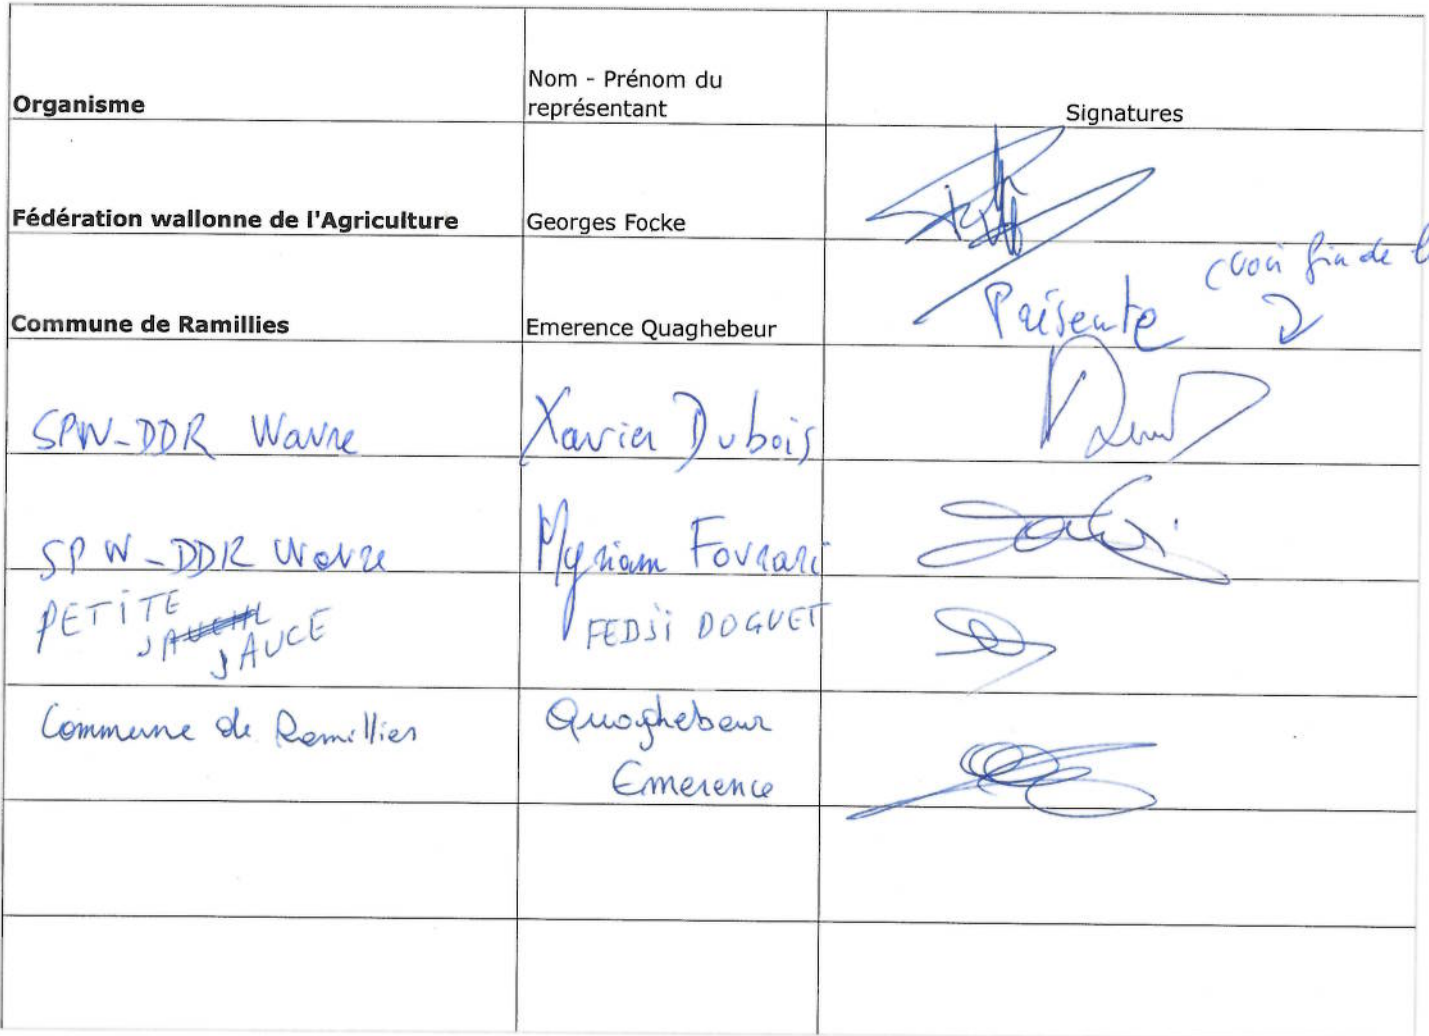 Organisme
Nom - Prénom du
représentant
Signatures
Fédération wallonne de l'Agriculture
Georges Focke
Commune de Ramillies
Emerence Quaghebeur
Présente
(voir fin de
SPW-DDR Wavre
Xavier Dubois
SPW-DDR Wavre
Myriam
PETITE
JAUCE
DOGUET
Commune de Ramillies
Quaghebeur
Emerence